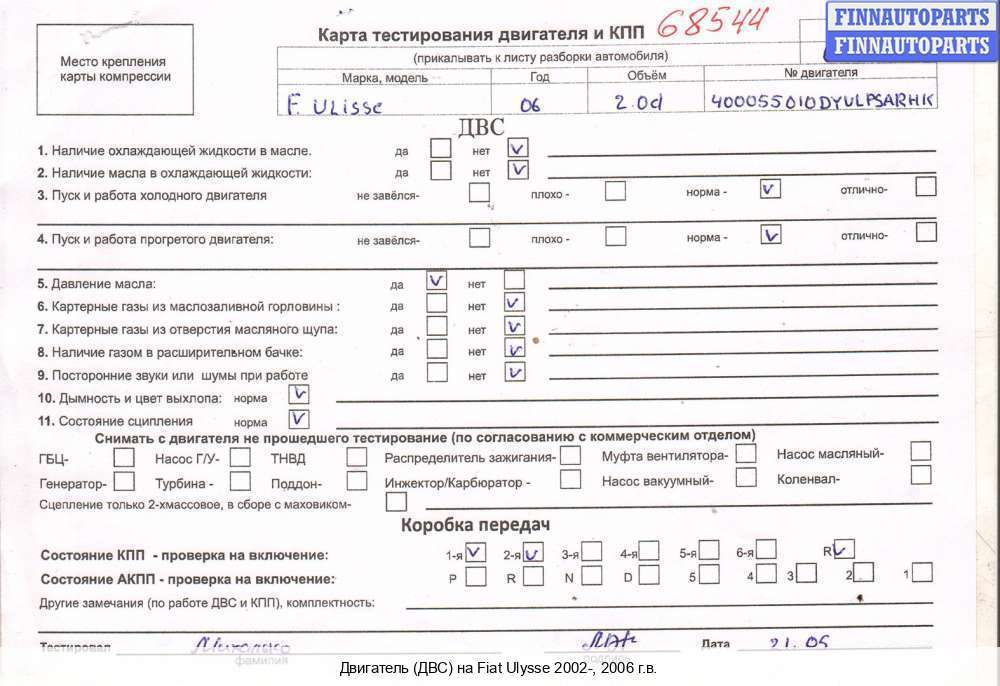 Место крепления
карты компрессии
Карта тестирования двигателя и КПП 68544
FINNAUTOPARTS
FINNAUTOPARTS
(прикалывать к листу разборки автомобиля)
Марка, модель Год Объём № двигателя
F. ULISSE 06 2.0d 400055010DYULPSARHK
ДВС
1. Наличие охлаждающей жидкости в масле. да нет V
2. Наличие масла в охлаждающей жидкости: да нет V
3. Пуск и работа холодного двигателя не завёлся- плохо - норма - V отлично-
4. Пуск и работа прогретого двигателя: не завёлся- плохо - норма - V отлично-
5. Давление масла: да V нет
6. Картерные газы из маслозаливной горловины : да нет V
7. Картерные газы из отверстия масляного щупа: да нет V
8. Наличие газом в расширительном бачке: да нет V
9. Посторонние звуки или шумы при работе да нет V
10. Дымность и цвет выхлопа: норма V
11. Состояние сципления норма V
Снимать с двигателя не прошедшего тестирование (по согласованию с коммерческим отделом)
ГБЦ- Насос Г/У- ТНВД Распределитель зажигания- Муфта вентилятора- Насос масляный-
Генератор- Турбина - Поддон- Инжектор/Карбюратор - Насос вакуумный- Коленвал-
Сцепление только 2-хмассовое, в сборе с маховиком-
Коробка передач
Состояние КПП - проверка на включение: 1-я V 2-я V 3-я 4-я 5-я 6-я R V
Состояние АКПП - проверка на включение: P R N D 5 4 3 2 1
Другие замечания (по работе ДВС и КПП), комплектность:
Тестировал Дата 21.05
фамилия подпись
Двигатель (ДВС) на Fiat Ulysse 2002-, 2006 г.в.